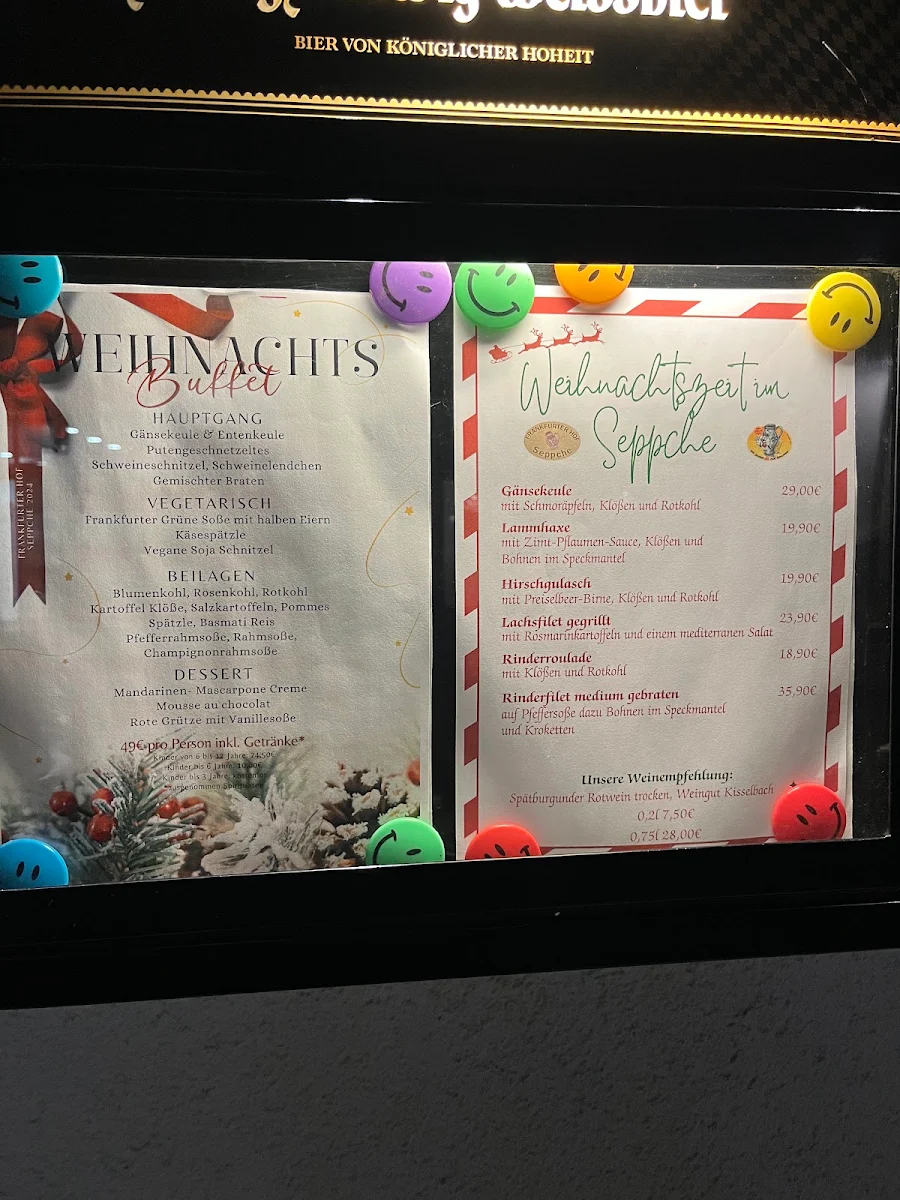 Weissbier
BIER VON KÖNIGLICHER HOHEIT
WEIHNACHTS
Buffet
HAUPTGANG
Gänsekeule & Entenkeule
Putengeschnetzeltes
Schweineschnitzel, Schweinelendchen
Gemischter Braten
VEGETARISCH
Frankfurter Grüne Soße mit halben Eiern
Käsespätzle
Vegane Soja Schnitzel
BEILAGEN
Blumenkohl, Rosenkohl, Rotkohl
Kartoffel Klöße, Salzkartoffeln, Pommes
Spätzle, Basmati Reis
Pfefferrahmsoße, Rahmsoße,
Champignonrahmsoße
DESSERT
Mandarinen- Mascarpone Creme
Mousse au chocolat
Rote Grütze mit Vanillesoße
49€ pro Person inkl. Getränke*
Kinder von 6 bis 12 Jahre: 24,50€
Kinder bis 6 Jahre: 10,00€
Kinder bis 3 Jahre, kostenfrei
*ausgenommen Spirituosen
FRANKFURTER HOF
SEPPCHE 2024
Weihnachtszeit im
Seppche
FRANKFURTER HOF
Seppche
Gänsekeule 29,00€
mit Schmoräpfeln, Klößen und Rotkohl
Lammhaxe 19,90€
mit Zimt-Pflaumen-Sauce, Klößen und
Bohnen im Speckmantel
Hirschgulasch 19,90€
mit Preiselbeer-Birne, Klößen und Rotkohl
Lachsfilet gegrillt 23,90€
mit Rosmarinkartoffeln und einem mediterranen Salat
Rinderroulade 18,90€
mit Klößen und Rotkohl
Rinderfilet medium gebraten 35,90€
auf Pfeffersoße dazu Bohnen im Speckmantel
und Kroketten
Unsere Weinempfehlung:
Spätburgunder Rotwein trocken, Weingut Kisselbach
0,2l 7,50€
0,75l 28,00€